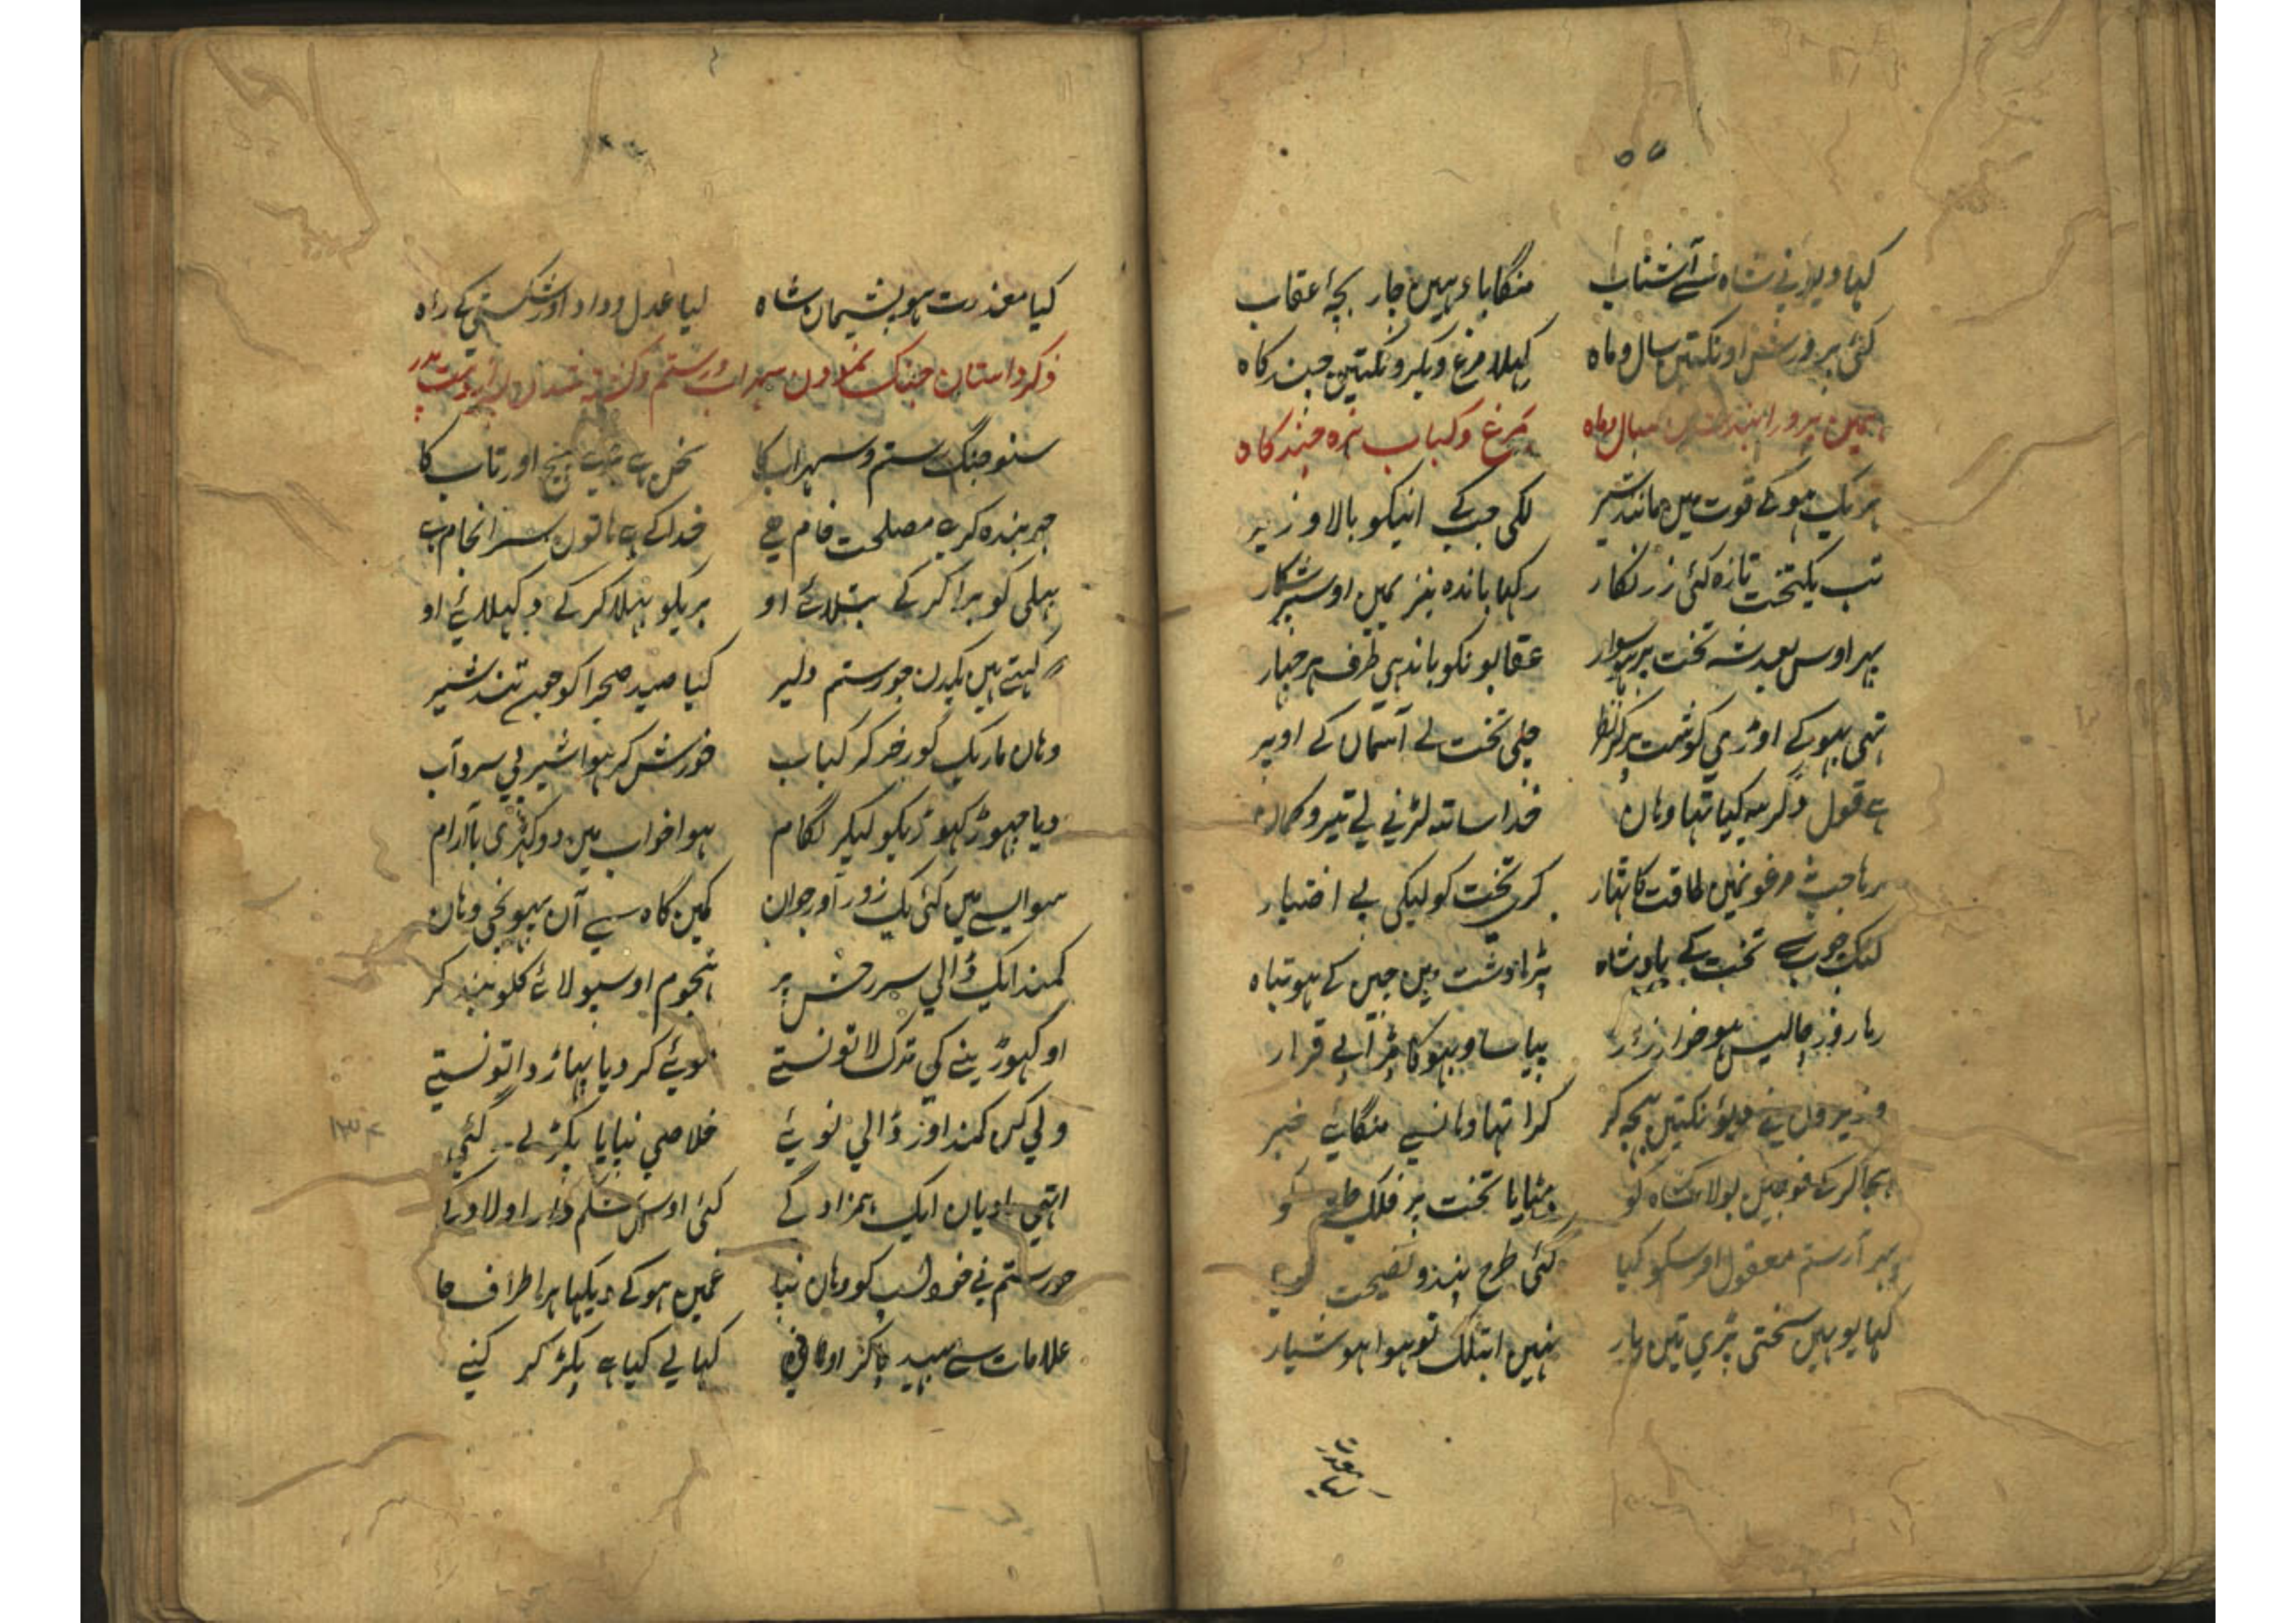 ۵۵
کہا دیو نے شاہ سے آ شتاب منگایا وہیں چار بچۂ عقاب
کئی پرورش اونکتیں سال و ماہ کہلا مرغ و بکرونکتیں چند گاہ
ہمیں پرورانیدشان سال و ماہ بمرغ و کباب بره چند گاہ
ہریک ہو کے قوت میں مانند شیر لگی جب کے انیکو بالا و زیر
تب یکتخت تازہ کئی زرنگار رکہا باندہ نیز نمیں اوسپر شکار
پہر اوس بعد شہ تخت پر ہو سوار عقابونکو باندہی طرف ہر چہار
تہی بہوکے اوڑی گوشت پر کر نظر چلی تخت لے آسماں کے اوپر
ہے قول دگر یہ کیا تہا وہاں خدا ساتہ لڑنے لے تیر و کمان
رہا جب مرغونمیں طاقت کا تہار کری تخت کو لیکی بے اختیار
تخت کے بادشاہ پڑا دشت میں چین کے ہو تباہ
رہا روز چالیس ہو خوار زار پیاسا و بہوکا پڑا بے قرار
وزیر ول نے دیؤنکتیں بہجہ کر گرا تہا وہانسے منگائے خبر
بجا کرکے فوجیں بولا شاہ کو بٹہایا تخت پر فلک جاہ کو
پہر آ رستم معقول اوسکو کیا کئی طرح پند و نصیحت
کہا یوہیں سختی پڑی تین بار نہیں ابتلک تو ہوا ہوشیار
کیا معذرت ہو پشیمان شاہ لیا عدل و داد اور شکستی کے راہ
ذکر داستان جنگ نمودن سہراب و رستم و کشتہ شدن
سنو جنگ رستم و سہراب کا سخن ہے عجب پیچ اور تاب کا
جو بندہ کرے مصلحت خام ہے خدا کے ہے ہاتوں سرانجام ہے
بہلی کو برا کر کے بتلائے او بریکو بہلا کر کے دکہلائے او
کہتے ہیں یکدن جو رستم دلیر کیا صید صحرا کو جوں تند شیر
وہاں مار یک گورخر کر کباب خورش کر ہوا شیر پی سرد آب
دیا چہوڑ کہوڑیکو لیکر لگام ہوا خواب میں دو کہڑی با آرام
سو ایسے میں کئی یک زور آور جوان کمیں گاہ سے آن پہونچی وہاں
کمند ایک ڈالی سر رخش پر ہنجوم اوسپو لائے گلو بند کر
او کہوڑینے کی تدک لاتونستے نوئے کر دیا پہاڑ داتونستے
ولی کس کمند اور ڈالی نوئے خلاصی نپایا پکڑ لے گئے
اتہی ادیاں ایک ہمزاد کے کئی اوس شکم دار اولاد کے
جو رستم نے خود اسپ کو وہاں نپا غمیں ہو کے دیکہا ہر اطراف جا
علامات سے بہید پا کر کہا لے گیا ہے پکڑ کر کنے